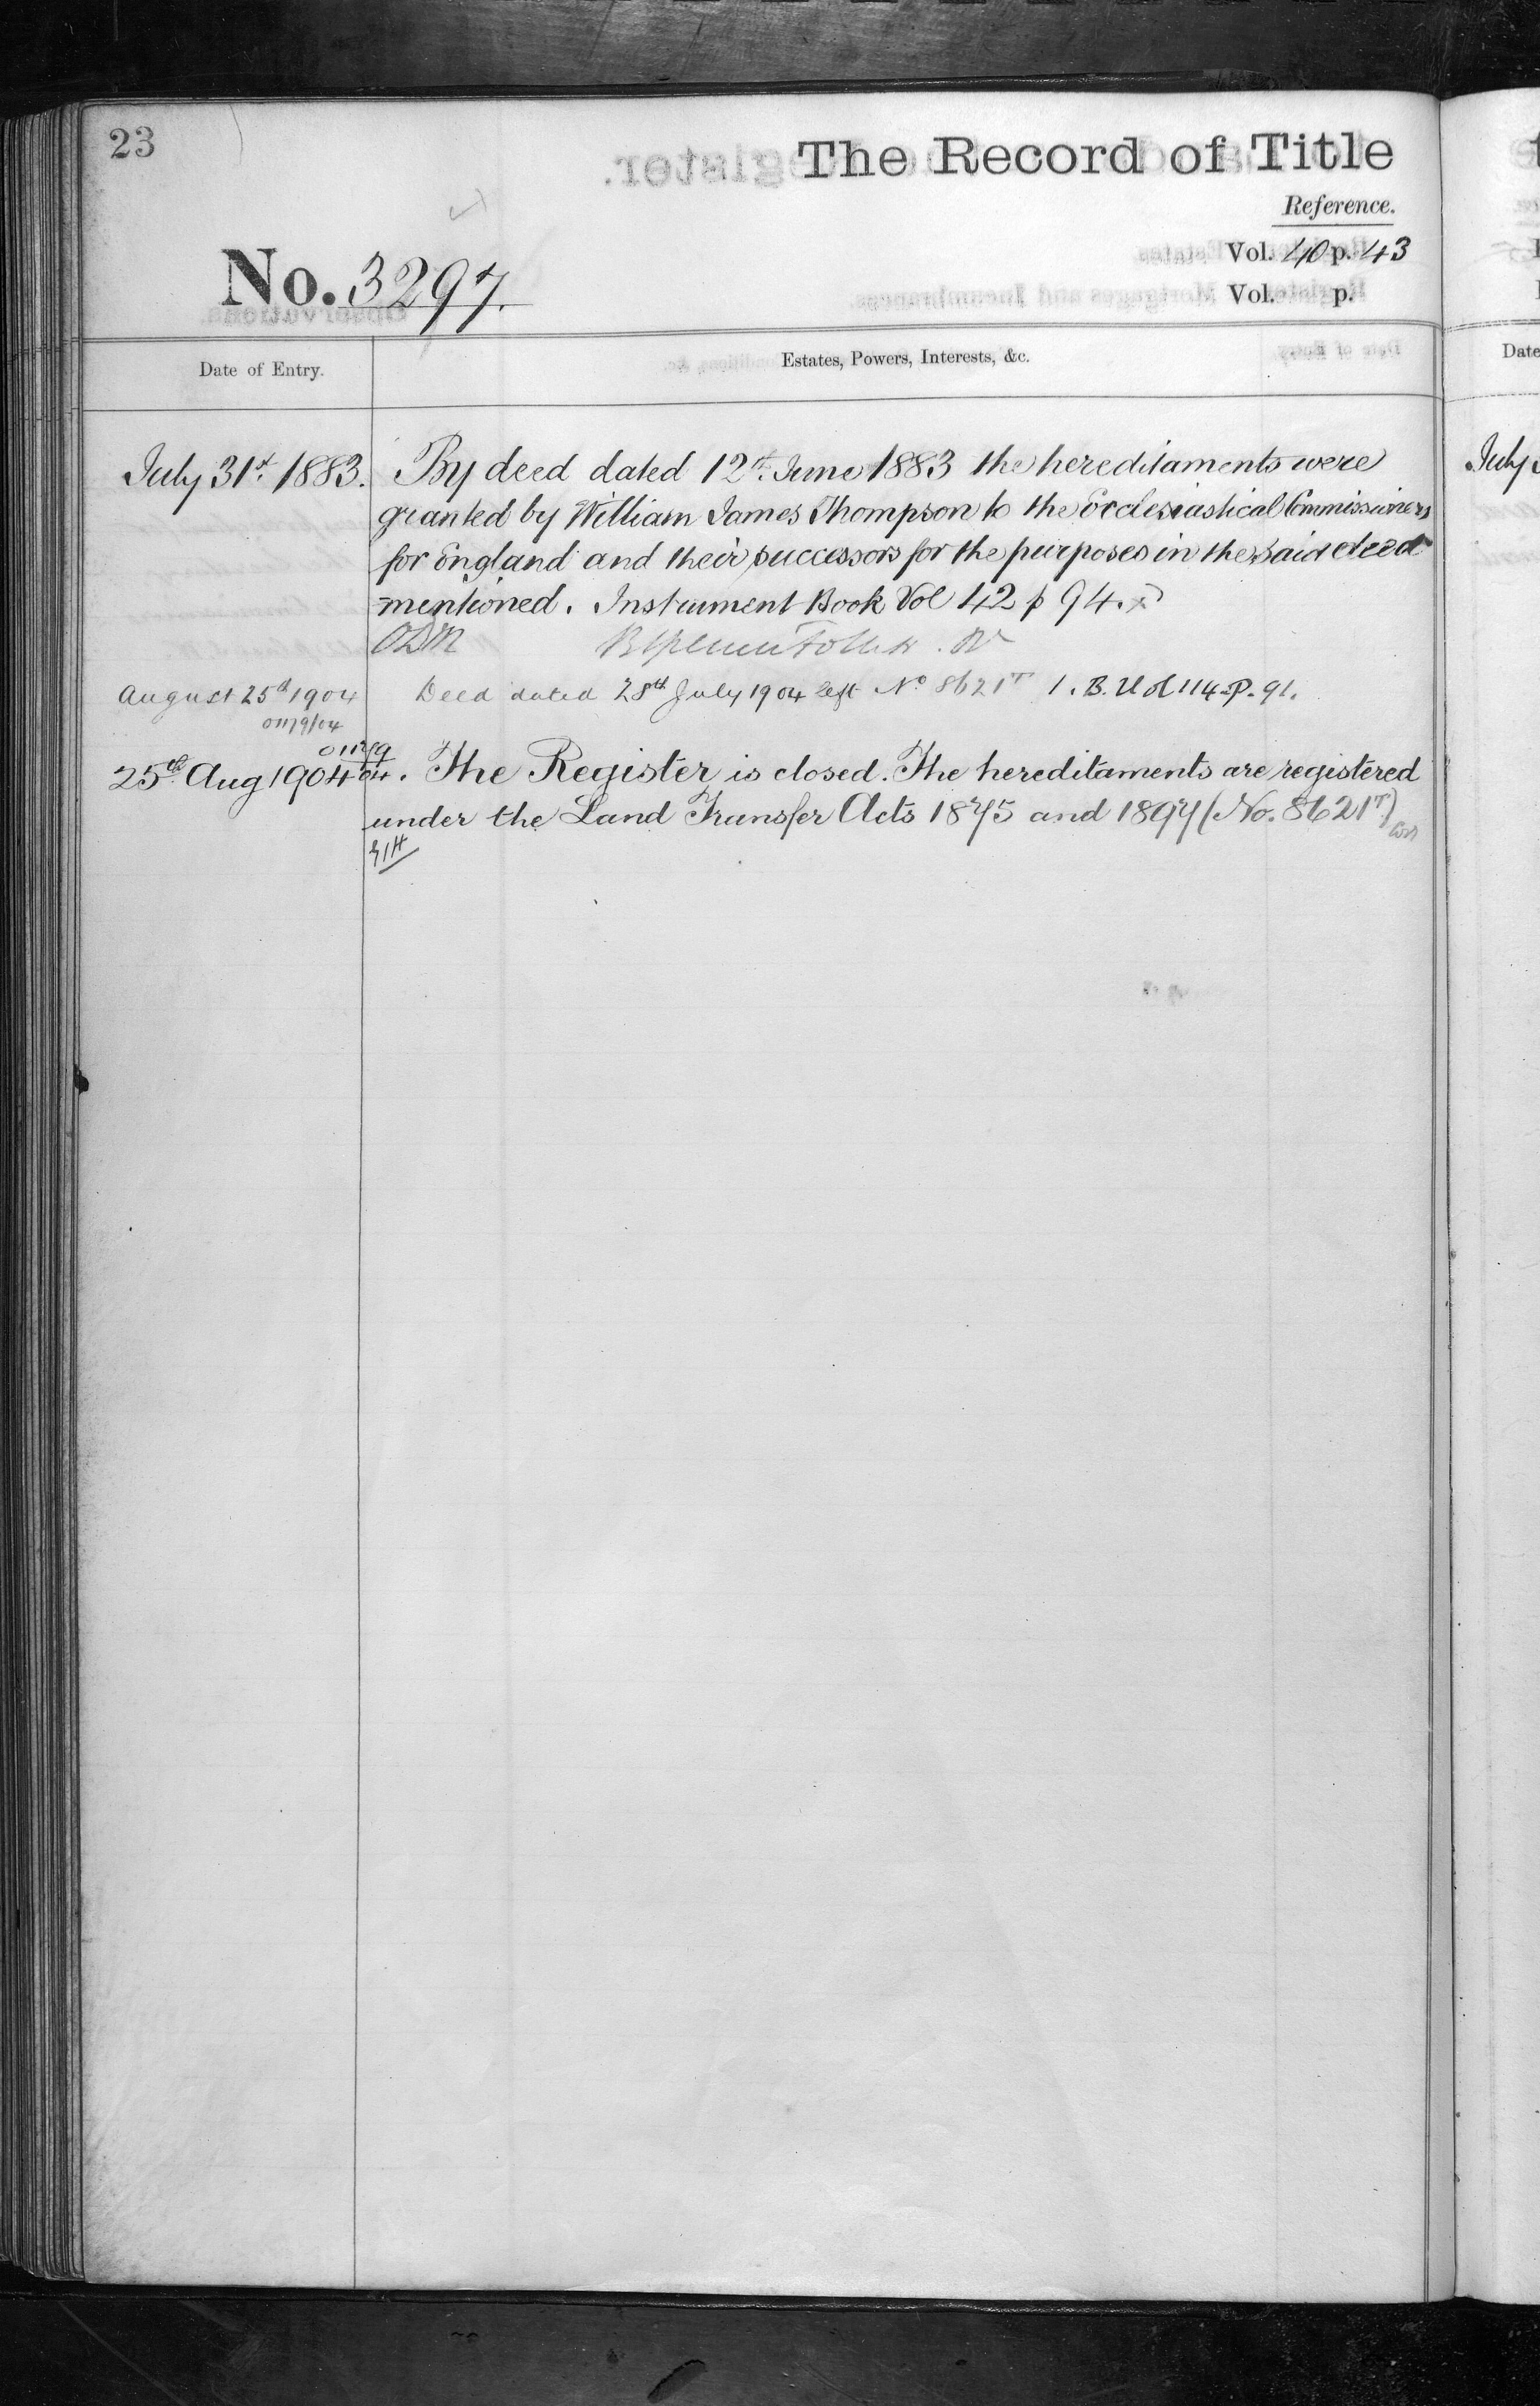 23
The Record of Title
Reference.
Vol. 40 p. 43
No. 3297.
Vol. p.
Date of Entry.
Estates, Powers, Interests, &c.
July 31st. 1883. By deed dated 12th. June 1883 the hereditaments were
granted by William James Thompson to the Ecclesiastical Commissioners
for England and their successors for the purposes in the said deed
mentioned. Instrument Book Vol 42 p 94.
August 25th 1904 Deed dated 28th July 1904 left No 8621T I. B. Vol 114 P. 91.
01179/04
01179
04
25th Aug 1904. The Register is closed. The hereditaments are registered
under the Land Transfer Acts 1875 and 1897 (No. 8621T)
Date
July